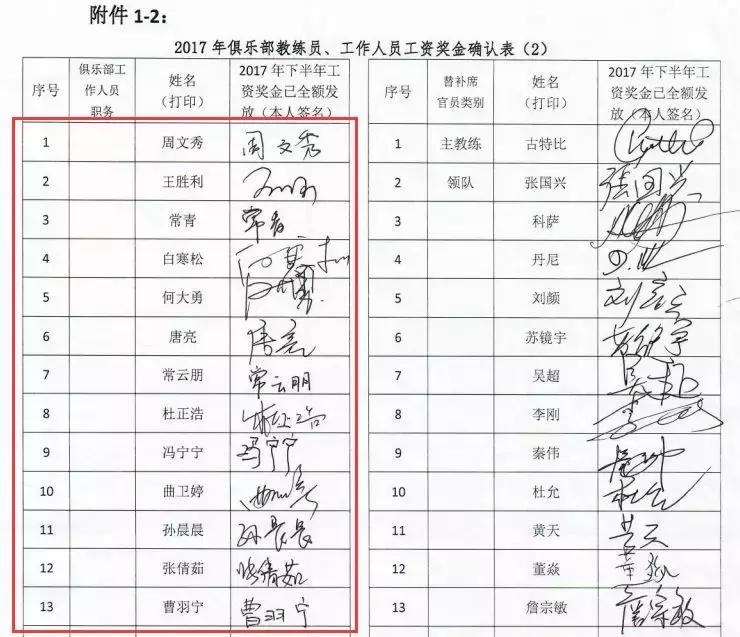 附件1-2：
2017年俱乐部教练员、工作人员工资奖金确认表（2）
序号 俱乐部工作人员职务 姓名（打印） 2017年下半年工资奖金已全额发放（本人签名） 替补席官员类别 姓名（打印） 2017年下半年工资奖金已全额发放（本人签名）
1 周文秀 周文秀 1 主教练 古特比
2 王胜利 2 领队 张国兴 张国兴
3 常青 常青 3 科萨
4 白寒松 4 丹尼
5 何大勇 5 刘颜
6 唐亮 唐亮 6 苏镜宇
7 常云朋 常云朋 7 吴超
8 杜正浩 8 李刚
9 冯宁宁 冯宁宁 9 秦伟
10 曲卫婷 10 杜允
11 孙晨晨 孙晨晨 11 黄天
12 张倩茹 张倩茹 12 董焱
13 曹羽宁 曹羽宁 13 詹宗敏 詹宗敏